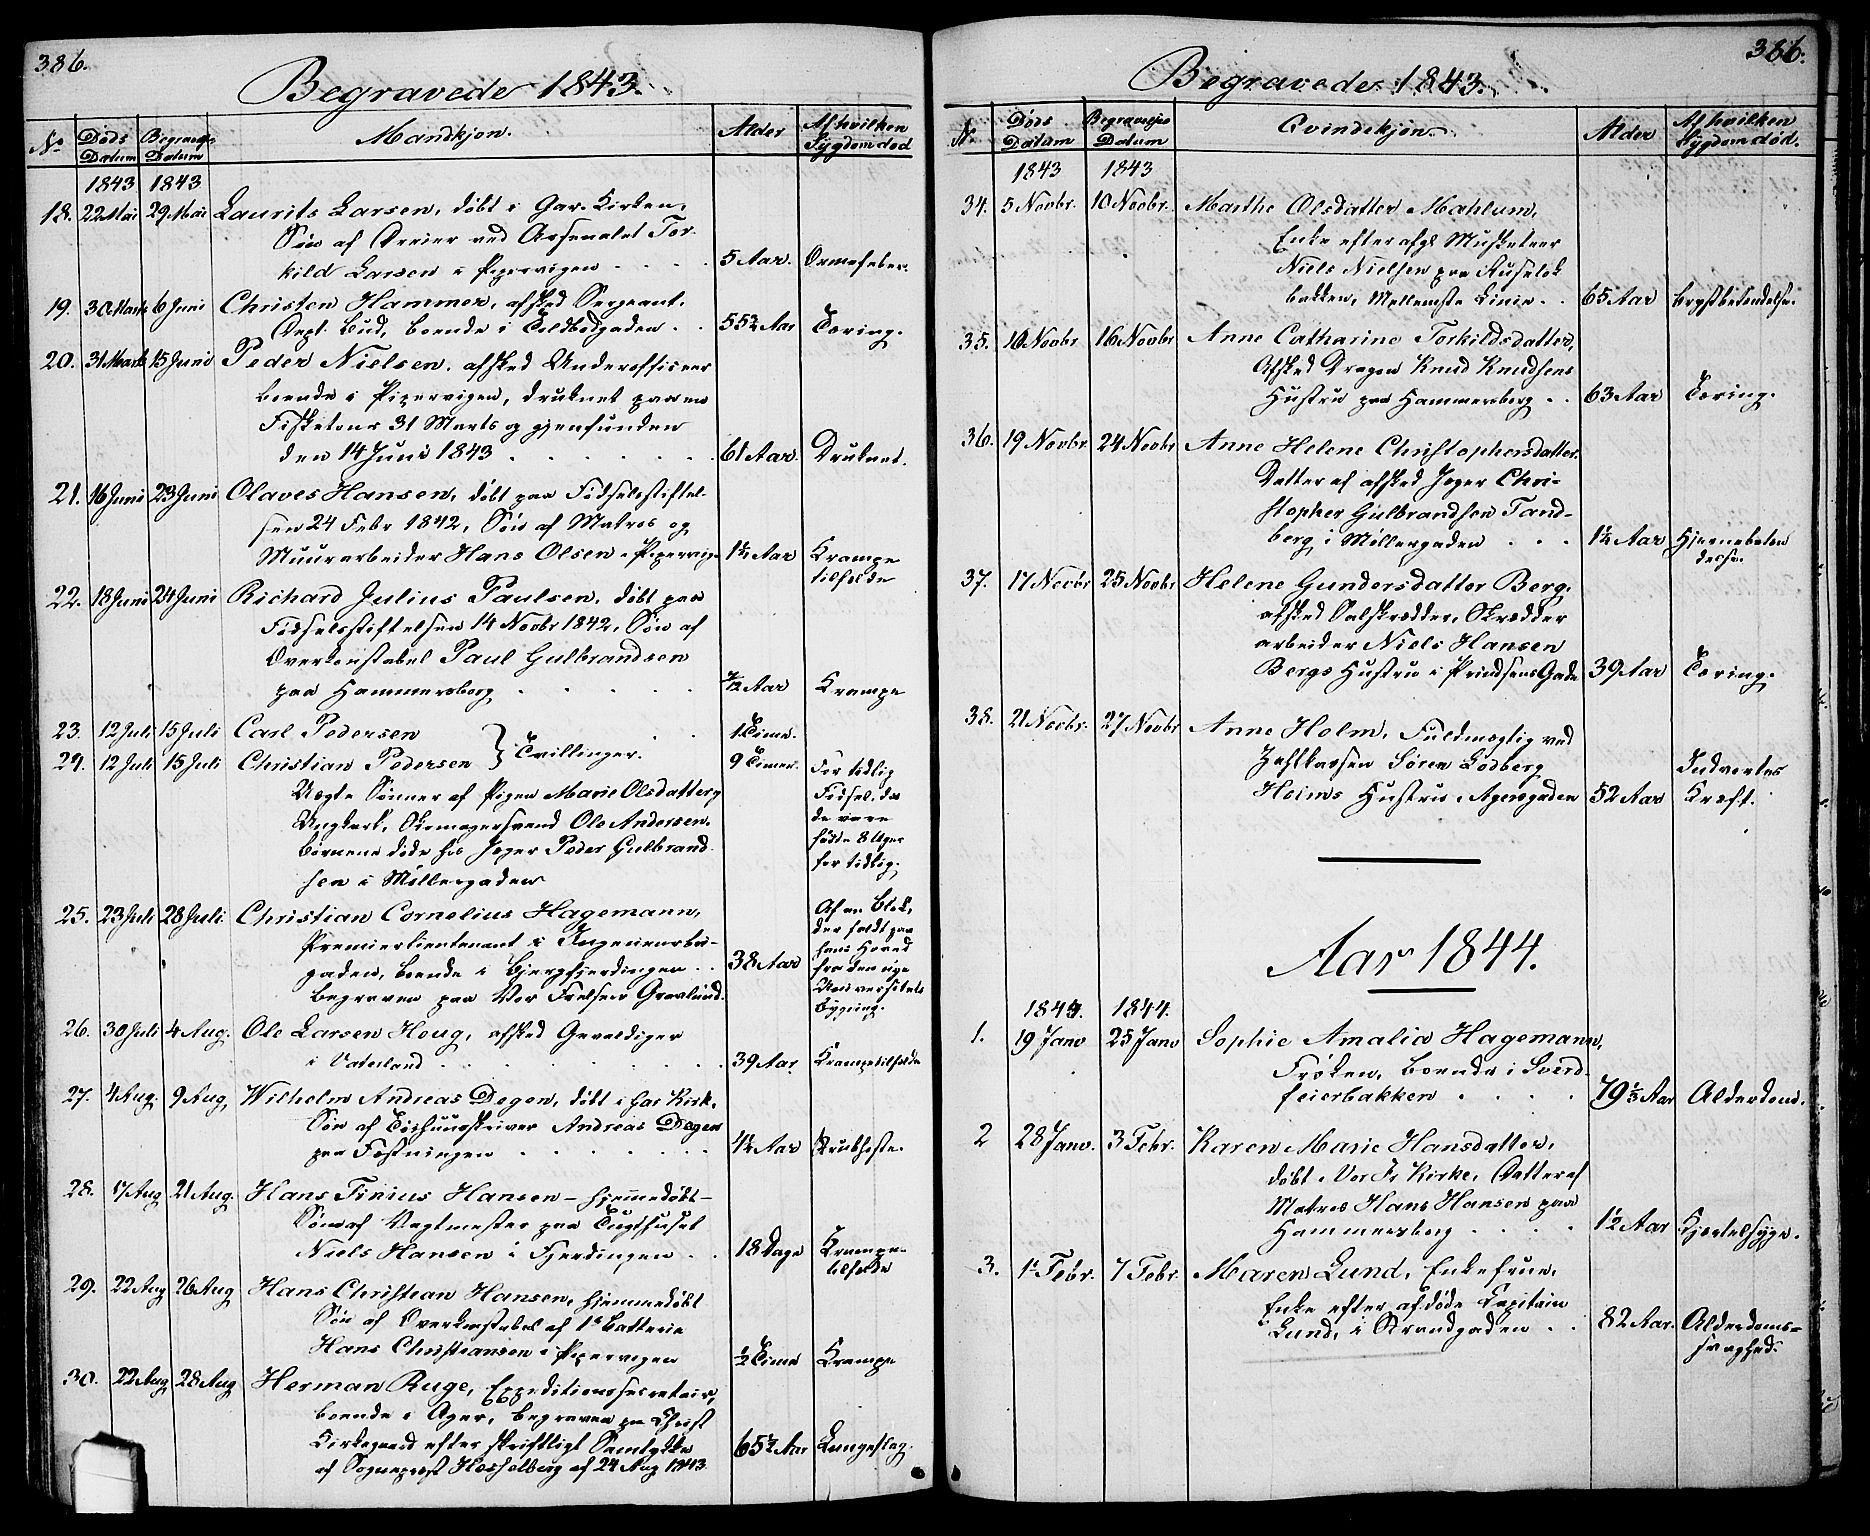 386.
Begravede 1843.
No Døds Datum Begravelses Datum Mandkjøn. Alder Af hvilken Sygdom død
1843 1843
18. 22 Mai 29 Mai Laurits Larsen, døbt i Gar. Kirken,
Søn af Dreier ved Arsenalet Tor-
kild Larsen i Pipervigen . . . . 5 Aar. Ormefeber.
19. 30 Marts 6 Juni Christen Hammer, afsked Sergeant,
Dept. Bud, boende i Toldbodgaden . . 55¾ Aar Tæring.
20. 31 Marts 15 Juni Peder Nielsen, afsked Underofficeer
boende i Pipervigen, druknet paa en
Fisketour 31 Marts og gjenfunden
den 14 Juni 1843 . . . . . . 61 Aar. Druknet.
21. 16 Juni 23 Juni Olaves Hansen, døbt paa Fødselsstiftel-
sen 24 Febr 1842, Søn af Matros og
Muurarbeider Hans Olsen i Pipervig. 1½ Aar Krampe
tilfælde
22. 18 Juni 24 Juni Richard Julius Paulsen, døbt paa
Fødselsstiftelsen 14 Novbr 1842, Søn af
Overkonstabel Paul Gulbrandsen
paa Hammersborg . . . . . 7/12 Aar Krampe
23. 12 Juli 15 Juli Carl Pedersen . . 1 Time.
24. 12 Juli 15 Juli Christian Pedersen } Tvillinger. 9 Timer. For tidlig
Uægte Sønner af Pigen Marie Olsdatter og Fødsel, da
Ungkarl, Skomagersvend Ole Andersen. de vare
Børnene døde hos Jæger Peder Gulbrand- fødte 8 Uger
sen i Møllergaden for tidlig.
25. 23 Juli 28 Juli Christian Cornelius Hagemann, Af en Blok,
Premierlieutenant i Ingenieurbri- der faldt paa
gaden, boende i Bjergfjerdingen . . 38 Aar hans Hoved
begraven paa Vor Frelsers Gravlund. fra den nye
Universitets
Bygning.
26. 30 Juli 4 Aug. Ole Larsen Houg, afsked Gevaldiger
i Vaterland . . . . . . . 39 Aar Krampetilfælde
27. 4 Aug. 9 Aug. Wilhelm Andreas Degen, døbt i Gar Kirk.
Søn af Tøihuusskriver Andreas Degen
paa Fæstningen . . . . . . . 4½ Aar Strubhoste.
28. 17 Aug 21 Aug. Hans Tinius Hansen - hjemmedøbt -
Søn af Vagtmester paa Tugthuset
Niels Hansen i Fjerdingen . . 18 Dage Krampe-
tilfælde
29. 22 Aug 26 Aug Hans Christian Hansen, hjemmedøbt
Søn af Overkonstabel af 1e Batterie
Hans Christiansen i Pipervigen ½ Time Krampe
30. 22 Aug 28 Aug Herman Ruge, Expeditionssecretair,
boende i Ager, begraven paa Christ
Kirkegaard efter skriftligt Samtykke
af Sogneprest Hesselberg af 24 Aug 1843. 65½ Aar Lungeslag.
386.
Begravede 1843.
No. Døds Datum Begravelses Datum Qvindekjøn. Alder Af hvilken Sygdom død.
1843 1843
34. 5 Novbr. 10 Novbr. Marthe Olsdatter Mæhlum,
Enke efter afgl Musketeer
Niels Nielsen paa Ruseløk
bakken, Mellemste Linie . . 65 Aar Brystbetendelse.
35. 10 Novbr 16 Novbr Anne Catharine Torkildsdatter,
Afsked Dragon Knud Knudsens
Hustru paa Hammersborg . . 63 Aar Tæring.
36. 19 Novbr 24 Novbr Anne Helene Christophersdatter.
Datter af afsked Jæger Chri-
stopher Gulbrandsen Tand-
berg i Møllergaden . . . 1½ Aar Hjernebeten
delse.
37. 17 Novbr 25 Novbr Helene Gundersdatter Berg,
afsked Skrædder
arbeider Niels Hansen
Bergs Hustru i Prindsens Gade 39 Aar Tæring.
38. 21 Novbr. 27 Novbr Anne Holm, Fuldmægtig ved
Søren Godberg Indvortes
Holms Hustru i Agersgaden 52 Aar Kræft.
Aar 1844.
1844. 1844.
1. 19 Janv 25 Janv Sophie Amalia Hagemann,
Frøken, boende i Sverd-
feierbakken . . . . 79⅓ Aar Alderdom.
2 28 Janv. 3 Febr. Karen Marie Hansdatter,
døbt i Vor Fr Kirke, Datter af
Matros Hans Hansen paa
Hammersborg . . . . 1½ Aar Kjertelsyge.
3. 1e Febr. 7 Febr. Maren Lund, Enkefrue,
Enke efter afdøde Capitain
Lund, i Strandgaden . . 82 Aar. Alderdoms-
svaghed.